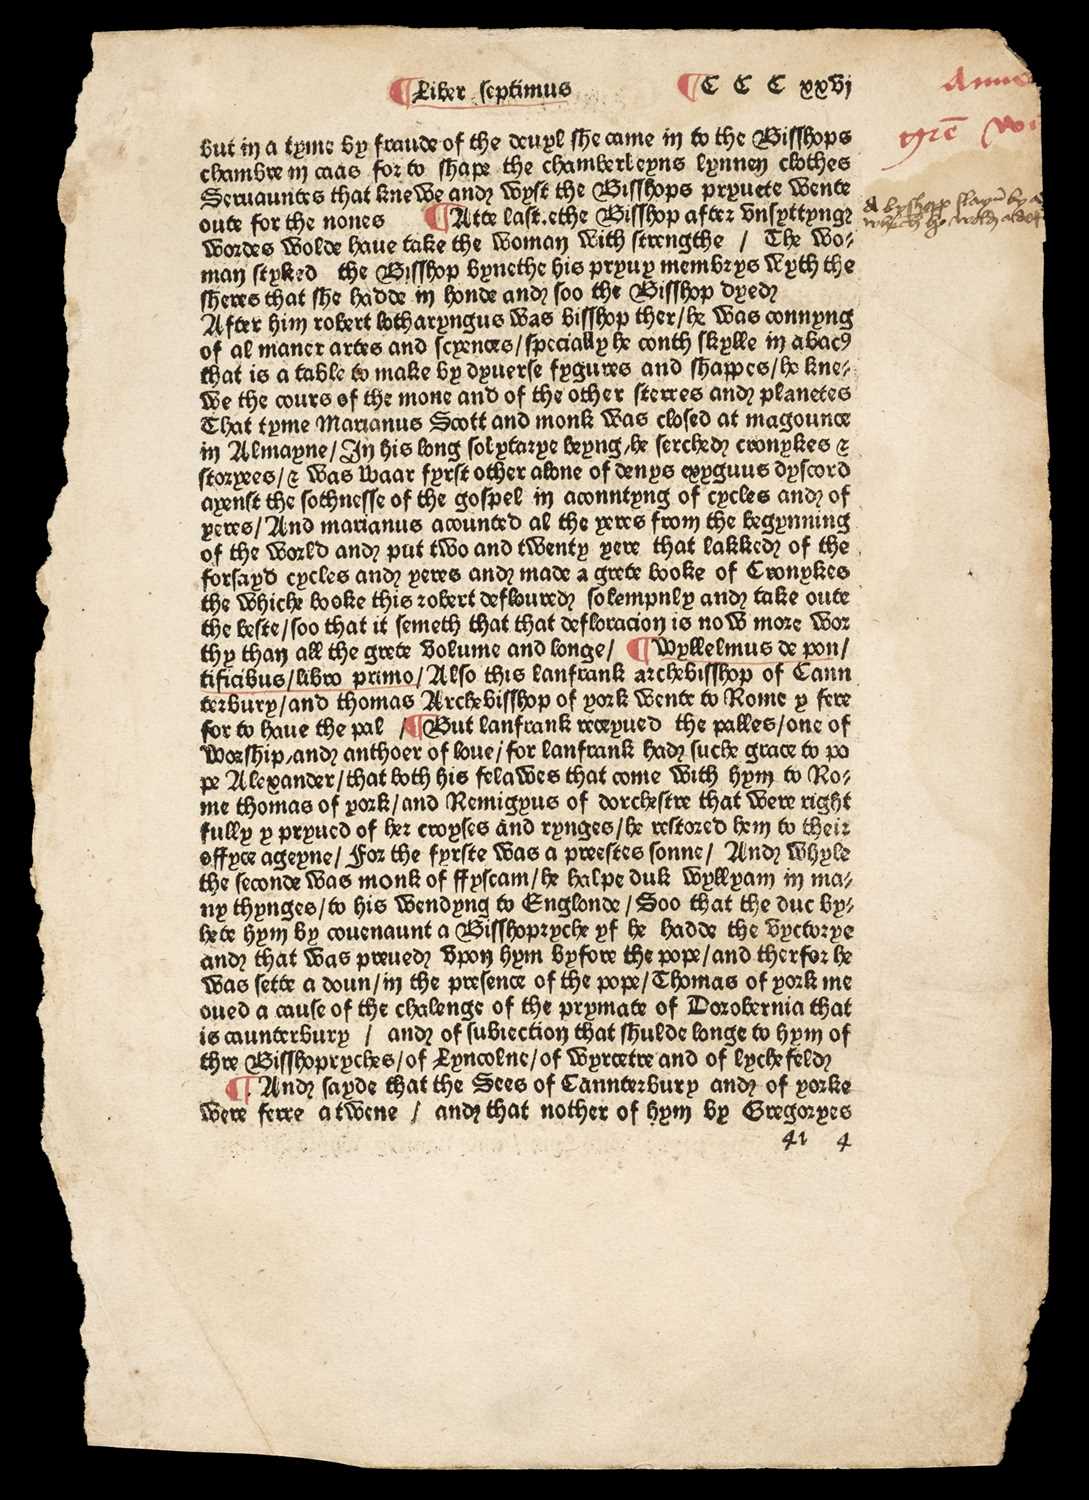 ¶ Liber septimus ¶ C C C xxvj
but in a tyme by fraude of the deuyl she came in to the Bisshops
chambre in caas for to shape the chamberleyns lynnen clothes
Seruauntes that knewe and wyst the Bisshops pryuete wente
oute for the nones ¶ Atte laste the Bisshop after vnsyttyng
wordes wolde haue take the woman with strengthe / The wo-
man styked the Bisshop bynethe his pryuy membrys wyth the
sheres that she hadde in honde and soo the Bisshop dyed
After him robert lotharyngus was bisshop ther / he was connyng
of al maner artes and scyences / specially he couth skylle in abacꝰ
that is a table to make by dyuerse fygures and shappes / he kne-
we the cours of the mone and of the other sterres and planetes
That tyme Marianus Scott and monk was closed at magounce
in Almayne / In his long solytarye beyng / he serched cronykes &
storyees / & was waar fyrst other alone of denys exyguus dyscord
ayenst the sothnesse of the gospel in acountyng of cycles and of
yeres / And marianus acounted al the yeres from the begynning
of the world and put two and twenty yere that lakked of the
forsayd cycles and yeres and made a grete booke of Cronykes
the whiche booke this robert defloured solempnly and take oute
the beste / soo that it semeth that that defloracion is now more wor
thy than all the grete volume and longe / ¶ Wyllelmus de pon /
tificibus / libro primo / Also this lanfrank archebisshop of Cann
terbury / and thomas Archebisshop of york wente to Rome y fere
for to haue the pal / ¶ But lanfrank receyued the palles / one of
worship / and anthoer of loue / for lanfrank had suche grace to po
pe Alexander / that both his felawes that come with hym to Ro-
me thomas of york / and Remigyus of dorchestre that were right
fully y pryued of her croyses and rynges / he restored hem to their
offyce ageyne / For the fyrste was a preestes sonne / And whyle
the seconde was monk of ffyscam / he halpe duk wyllyam in ma-
ny thynges / to his wendyng to Englonde / Soo that the duc by-
hete hym by couenaunt a Bisshopryche yf he hadde the vyctorye
and that was preued vpon hym byfore the pope / and therfor he
was sette a doun / in the presence of the pope / Thomas of york me
oued a cause of the chalenge of the prymate of Dorobernia that
is caunterbury / and of subiection that shulde longe to hym of
thre Bisshopryches / of Lyncolne / of wyrcetre and of lychefeld
¶ And sayde that the Sees of Cannterbury and of yorke
were ferre atwene / and that nother of hym by Gregoryes
41 4
Anno
A bysshopp slayn by a